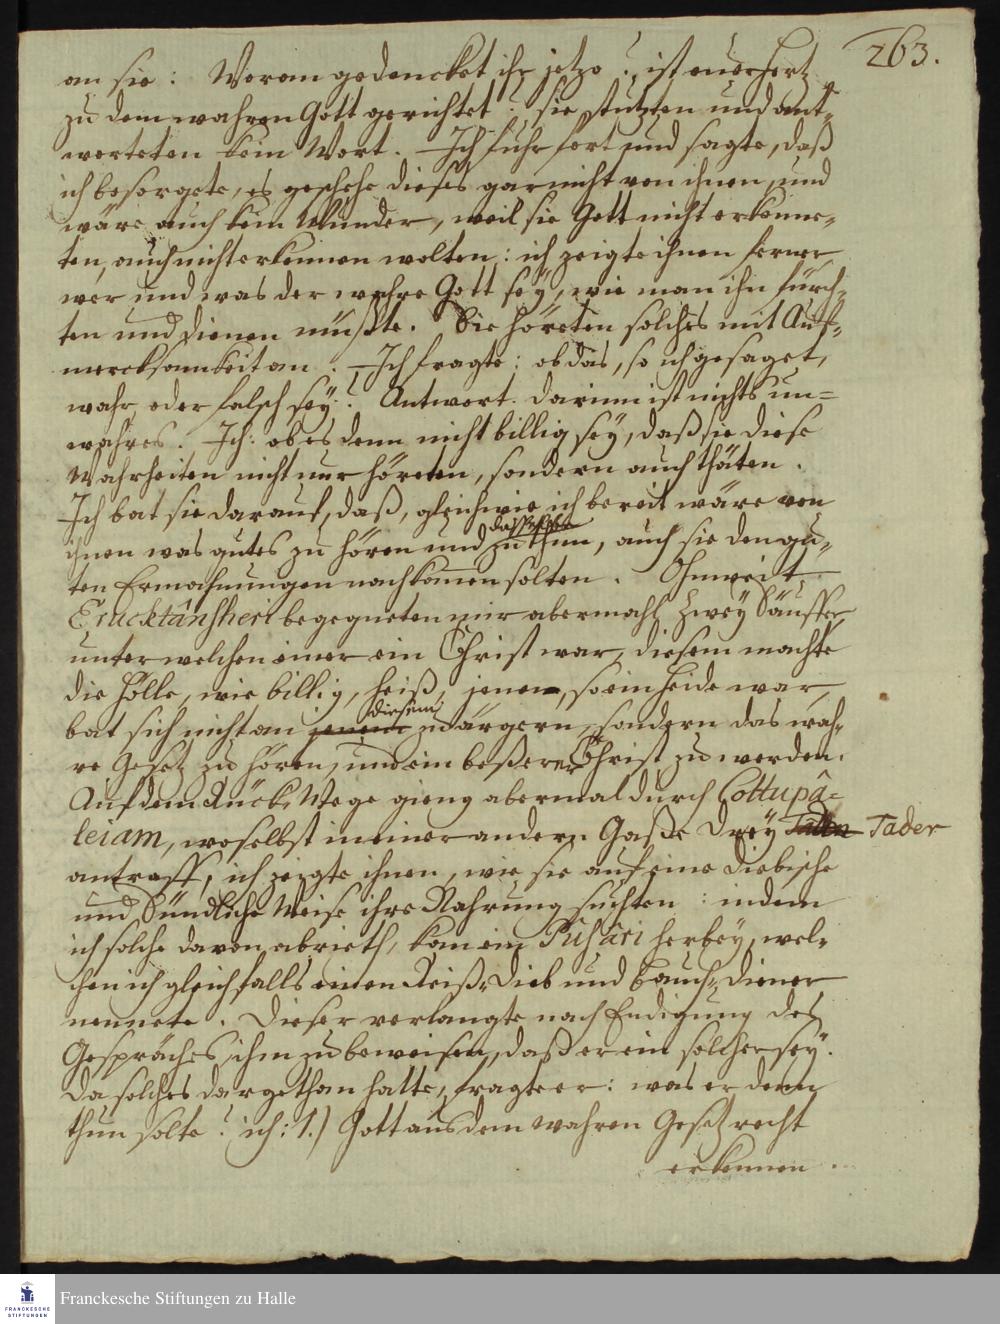 263.
an sie: Woran gedencket ihr jetzo? ist euer Hertz
zu dem wahren Gott gerichtet? sie stutzten und ant-
worteten kein Wort. Ich fuhr fort und sagte, daß
ich besorgete, es geschehe dieses gar nicht von ihnen, und
wäre auch kein Wunder, weil sie Gott nicht erkenne-
ten, auch nicht erkennen wolten: ich zeigte ihnen ferner
wer und was der wahre Gott sey, wie man ihn fürch-
ten und dienen müßte. Sie höreten solches mit Auf-
mercksamkeit an. Ich fragte: ob das, so ich gesaget,
wahr oder falsch sey? Antwort. darinn ist nichts un-
wahres. Ich: ob es denn nicht billig sey, daß sie diese
Wahrheiten nicht nur höreten, sondern auch thäten.
Ich bat sie darauf, daß, gleichwie ich bereit wäre von
ihnen was gutes zu hören und zu thun, auch sie den gu-
ten Ermahnungen nachkommen solten. Ohnweit
Erucktânscheri begegneten mir abermahl zwey Säuffer,
unter welchen einer ein Christ war, diesem machte
die Hölle, wie billig, heiß, jenen, so ein Heide war,
bat sich nicht an jenem diesem zu ärgern, sondern das wah-
re Gesetz zu hören, und ein beßerer Christ zu werden.
Auf dem Rück-Wege gieng abermal durch Cottupâ-
leiam, woselbst in einer andern Gaße drey Tader
antraff; ich zeigte ihnen, wie sie auf eine diebische
und Sündliche Weise ihre Nahrung suchten: indem
ich solche davon abrieth, kam ein Pusâri herbey, wel-
chen ich gleichfalls einen Reiß-Dieb und Bauch-diener
nennete. Dieser verlangte nach Endigung des
Gespräches ihm zu beweisen, daß er ein solcher sey.
Da solches dargethan hatte, fragte er: was er denn
thun solte? ich: 1.) Gott aus dem wahren Gesetz recht
erkennen.
Franckesche Stiftungen zu Halle
FRANCKESCHE
STIFTUNGEN